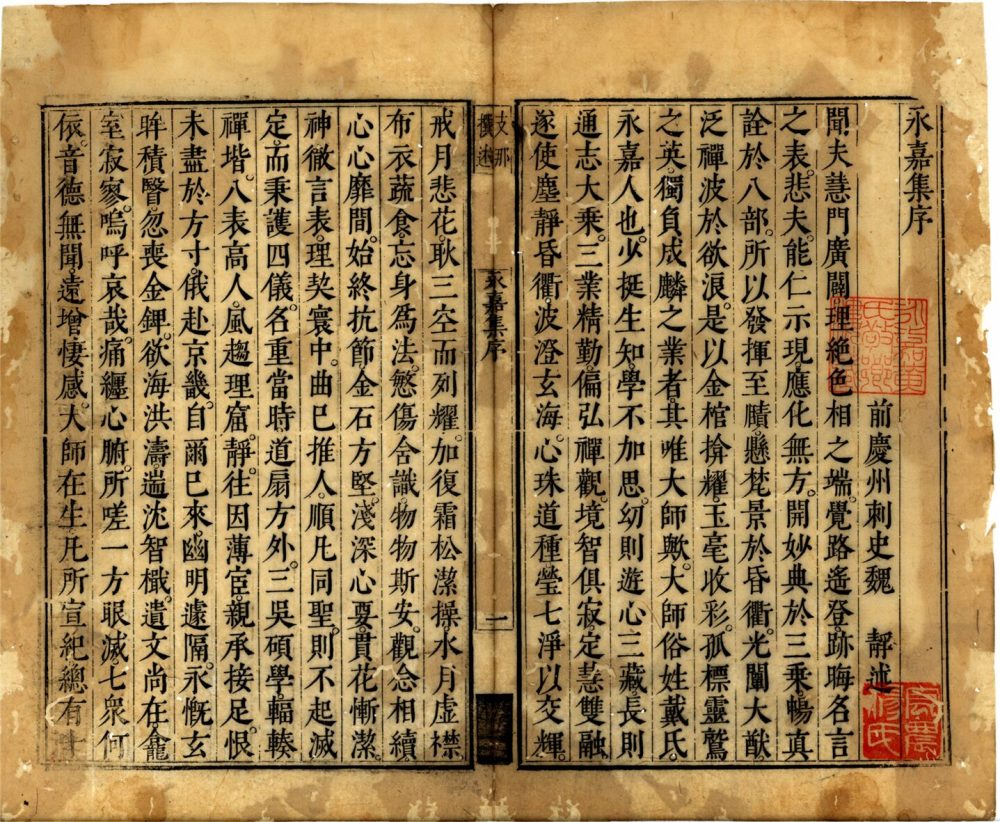 永嘉集序
前慶州刺史魏　靜述
聞夫慧門廣闢。理絕色相之端。覺路遙登。跡晦名言
之表。悲夫。能仁示現。應化無方。開妙典於三乘。暢真
詮於八部。所以發揮至賾。懸梵景於昏衢。光闡大猷。
泛禪波於欲浪。是以金棺揜耀。玉毫收彩。孤標靈鷲
之英。獨負成麟之業者。其唯大師歟。大師俗姓戴氏。
永嘉人也。少挺生知。學不加思。幼則遊心三藏。長則
通志大乘。三業精勤。偏弘禪觀。境智俱寂。定慧雙融。
遂使塵靜昏衢。波澄玄海。心珠道種。瑩七淨以交輝。
支那
撰述
永嘉集序
一
戒月悲花。耿三空而列耀。加復霜松潔操。水月虛襟。
布衣蔬食。忘身為法。愍傷含識。物物斯安。觀念相續。
心心靡間。始終抗節。金石方堅。淺深心要。貫花慚潔。
神徹言表。理契寰中。曲已推人。順凡同聖。則不起滅
定。而秉護四儀。名重當時。道扇方外。三吳碩學。輻輳
禪堦。八表高人。風趨理窟。靜往因薄宦。親承接足。恨
未盡於方寸。俄赴京畿。自爾已來。幽明遽隔。永慨玄
眸積翳。忽喪金錍。欲海洪濤。遄沈智檝。遺文尚在。龕
室寂寥。嗚呼哀哉。痛纏心腑。所嗟一方眼滅。七眾何
依。音德無聞。遠增悽感。大師在生。凡所宣紀。總有十